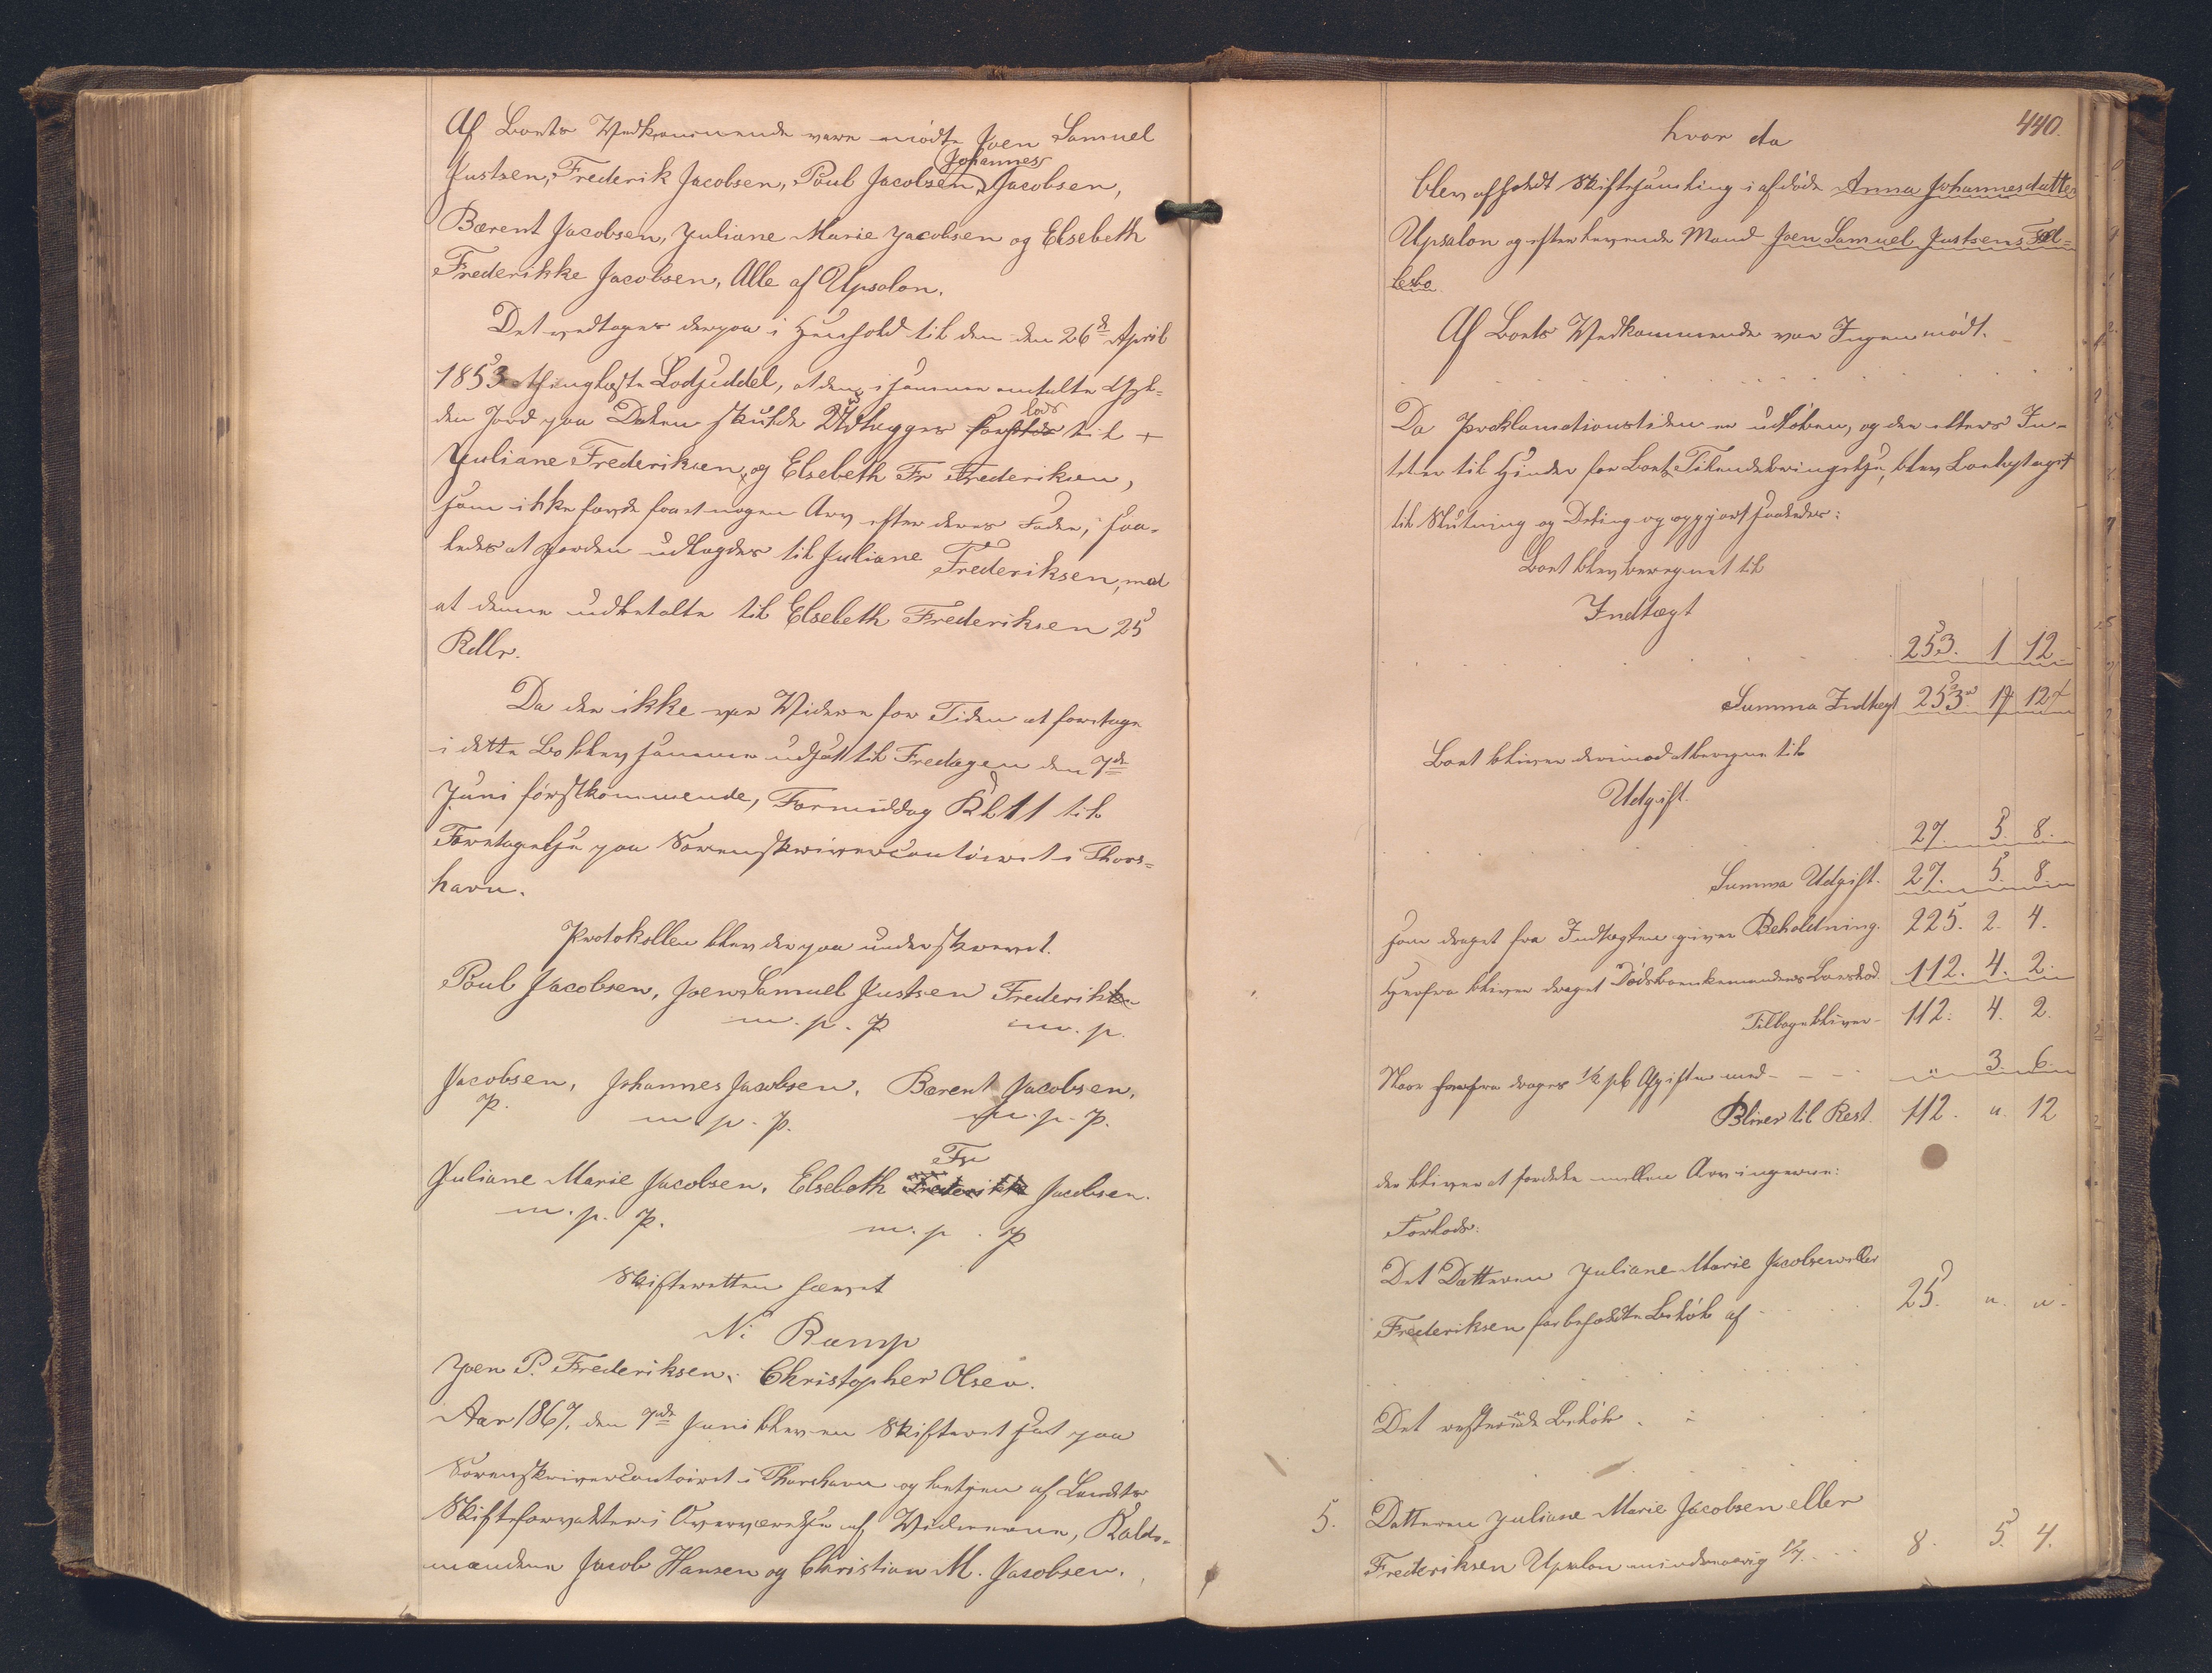 Af Boets Vedkommende vare mødte Joen Samuel
Johannes
Justsen, Frederik Jacobsen, Poul Jacobsen, Jacobsen,
Bærent Jacobsen, Juliane Marie Jacobsen og Elsebeth
Frederikke Jacobsen, Alle af Upsalon.
Det vedtoges derpaa i Henhold til den den 26de April
1853 thinglæste Lodseddel, at den i samme omtalte
den Jord paa skulde Udlægges til +
lods
Juliane Frederiksen, og Elsebeth Fr Frederiksen,
som ikke havde faaet nogen Arv efter deres Fader, saa-
ledes at Jorden udlagdes til Juliane Frederiksen, mod
at denne udbetalte til Elsebeth Frederiksen 25
Rdlr.
Da der ikke var Videre for Tiden at foretage
i dette Bo blev samme udsat til Fredagen den 7de
Juni førstkommende, Formiddag Kl 11 til
Foretagelse paa Sorenskrivercontoiret i Thors-
havn.
Protokollen blev derpaa underskrevet.
Poul Jacobsen, Joen Samuel Justsen Frederik
m. p. P m. p.
Jacobsen, Johannes Jacobsen, Bærent Jacobsen,
P. m. p. P. m. p. P.
Fr
Juliane Marie Jacobsen, Elsebeth Frederikke Jacobsen.
m. p. P. m. p. P
Skifteretten hævet
N: Ramp
Joen P. Frederiksen. Christopher Olsen.
Aar 1867, den 7de Juni blev en Skifteret sat paa
Sorenskrivercontoiret i Thorshavn og betjent af Landets
Skifteforvalter i Overværelse af Vidnerne, Kalds-
mændene Jacob Hansen og Christian M. Jacobsen.
440.
hvor da
blev afholdt Skiftesamling i afdøde Anna Johannesdatter
Upsalon og efterlevende Mand Joen Samuel Justsens Fæl-
lesbo
Af Boets Vedkommende var Ingen mødt.
Da Proklamationstiden er udløben, og der ellers In-
tet er til Hinder for Boets Tilendebringelse, blev Boet optaget
til Slutning og Deling og opgjort saaledes:
Boet blev beregnet til
Indtægt
253. 1 12
Summa Indtægt 253. 1 12
Boet bliver derimod at beregne til
Udgift.
27. 5. 8.
Summa Udgift. 27. 5. 8.
som draget fra Indtægten giver Beholdning. 225. 2. 4.
Herfra bliver draget Boeslod 112. 4. 2.
Tilbagebliver 112. 4. 2.
Naar herfra drages 1/2 pC Afgiften med - - - " 3. 6.
Bliver til Rest 112. " 12
der bliver at fordele mellem Arvingerne:
Forlods:
Det Datteren Juliane Marie Jacobsen eller
Frederiksen forbeholdte Beløb af 25. " "
Det resterende Beløb
5. Datteren Juliane Marie Jacobsen eller
Frederiksen Upsalon mindreaarig 1/7 8. 5. 4.